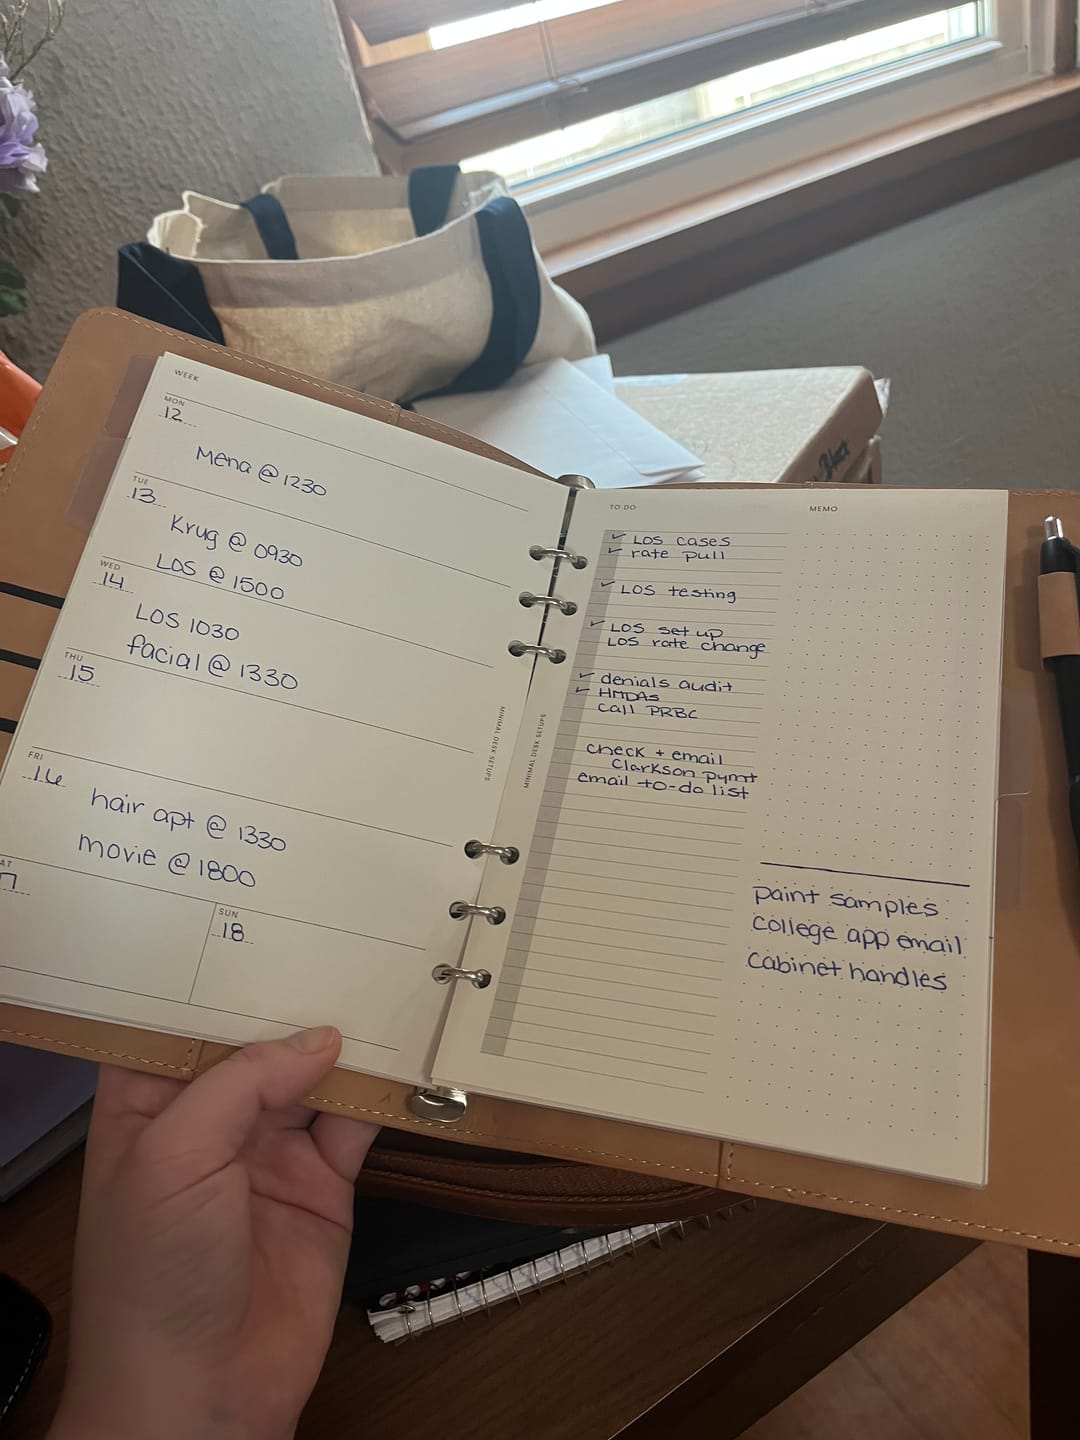 WEEK
MON
12
Mena @ 1230
TUE
13
Krug @ 0930
LOS @ 1500
WED
14
LOS 1030
facial @ 1330
THU
15
FRI
16
hair apt @ 1330
movie @ 1800
SUN
18
MINIMAL DESK SETUPS
MINIMAL DESK SETUPS
TO DO
✓ LOS cases
✓ rate pull
✓ LOS testing
✓ LOS set up
LOS rate change
✓ denials audit
✓ HMDAs
call PRBC
check + email
Clarkson pymt
email to-do list
MEMO
paint samples
college app email
cabinet handles